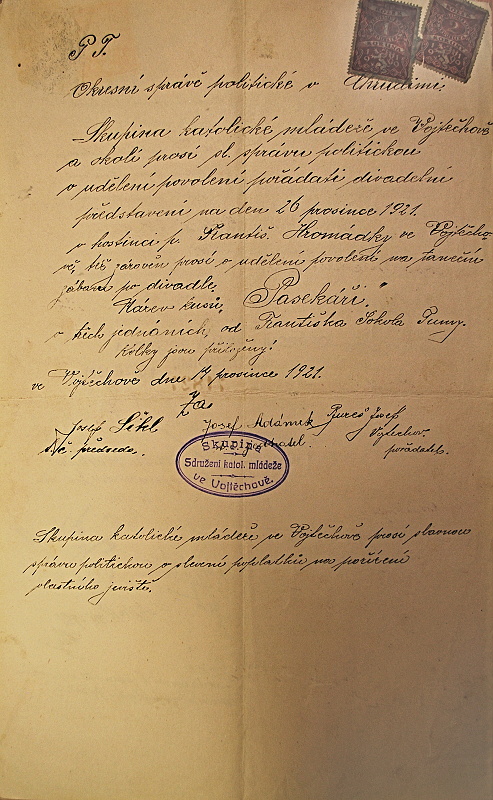 P. T.
Okresní správě politické v Chrudimi.
Skupina katolické mládeže ve Vojtěchově
a okolí prosí sl. správu politickou
o udělení povolení pořádati divadelní
představení na den 26 prosince 1921.
v hostinci p. Františ. Hromádky ve Vojtěcho-
vě, též zároveň prosí o udělení povolení na taneční
zábavu po divadle.
Název kusu, "Pasekáři,"
o třech jednáních, od Františka Sokola Tumy.
Kolky jsou přiloženy!
ve Vojtěchově dne 17 prosince 1921.
Za
Josef Šikl Josef Adámek Bureš Josef
předseda. jednatel. Vojtěchov.
pořadatel.
Skupina
Sdružení katol. mládeže
ve Vojtěchově.
Skupina katolické mládeže ve Vojtěchově prosí slavnou
správu politickou o slevení poplatků na pořízení
vlastního jeviště.